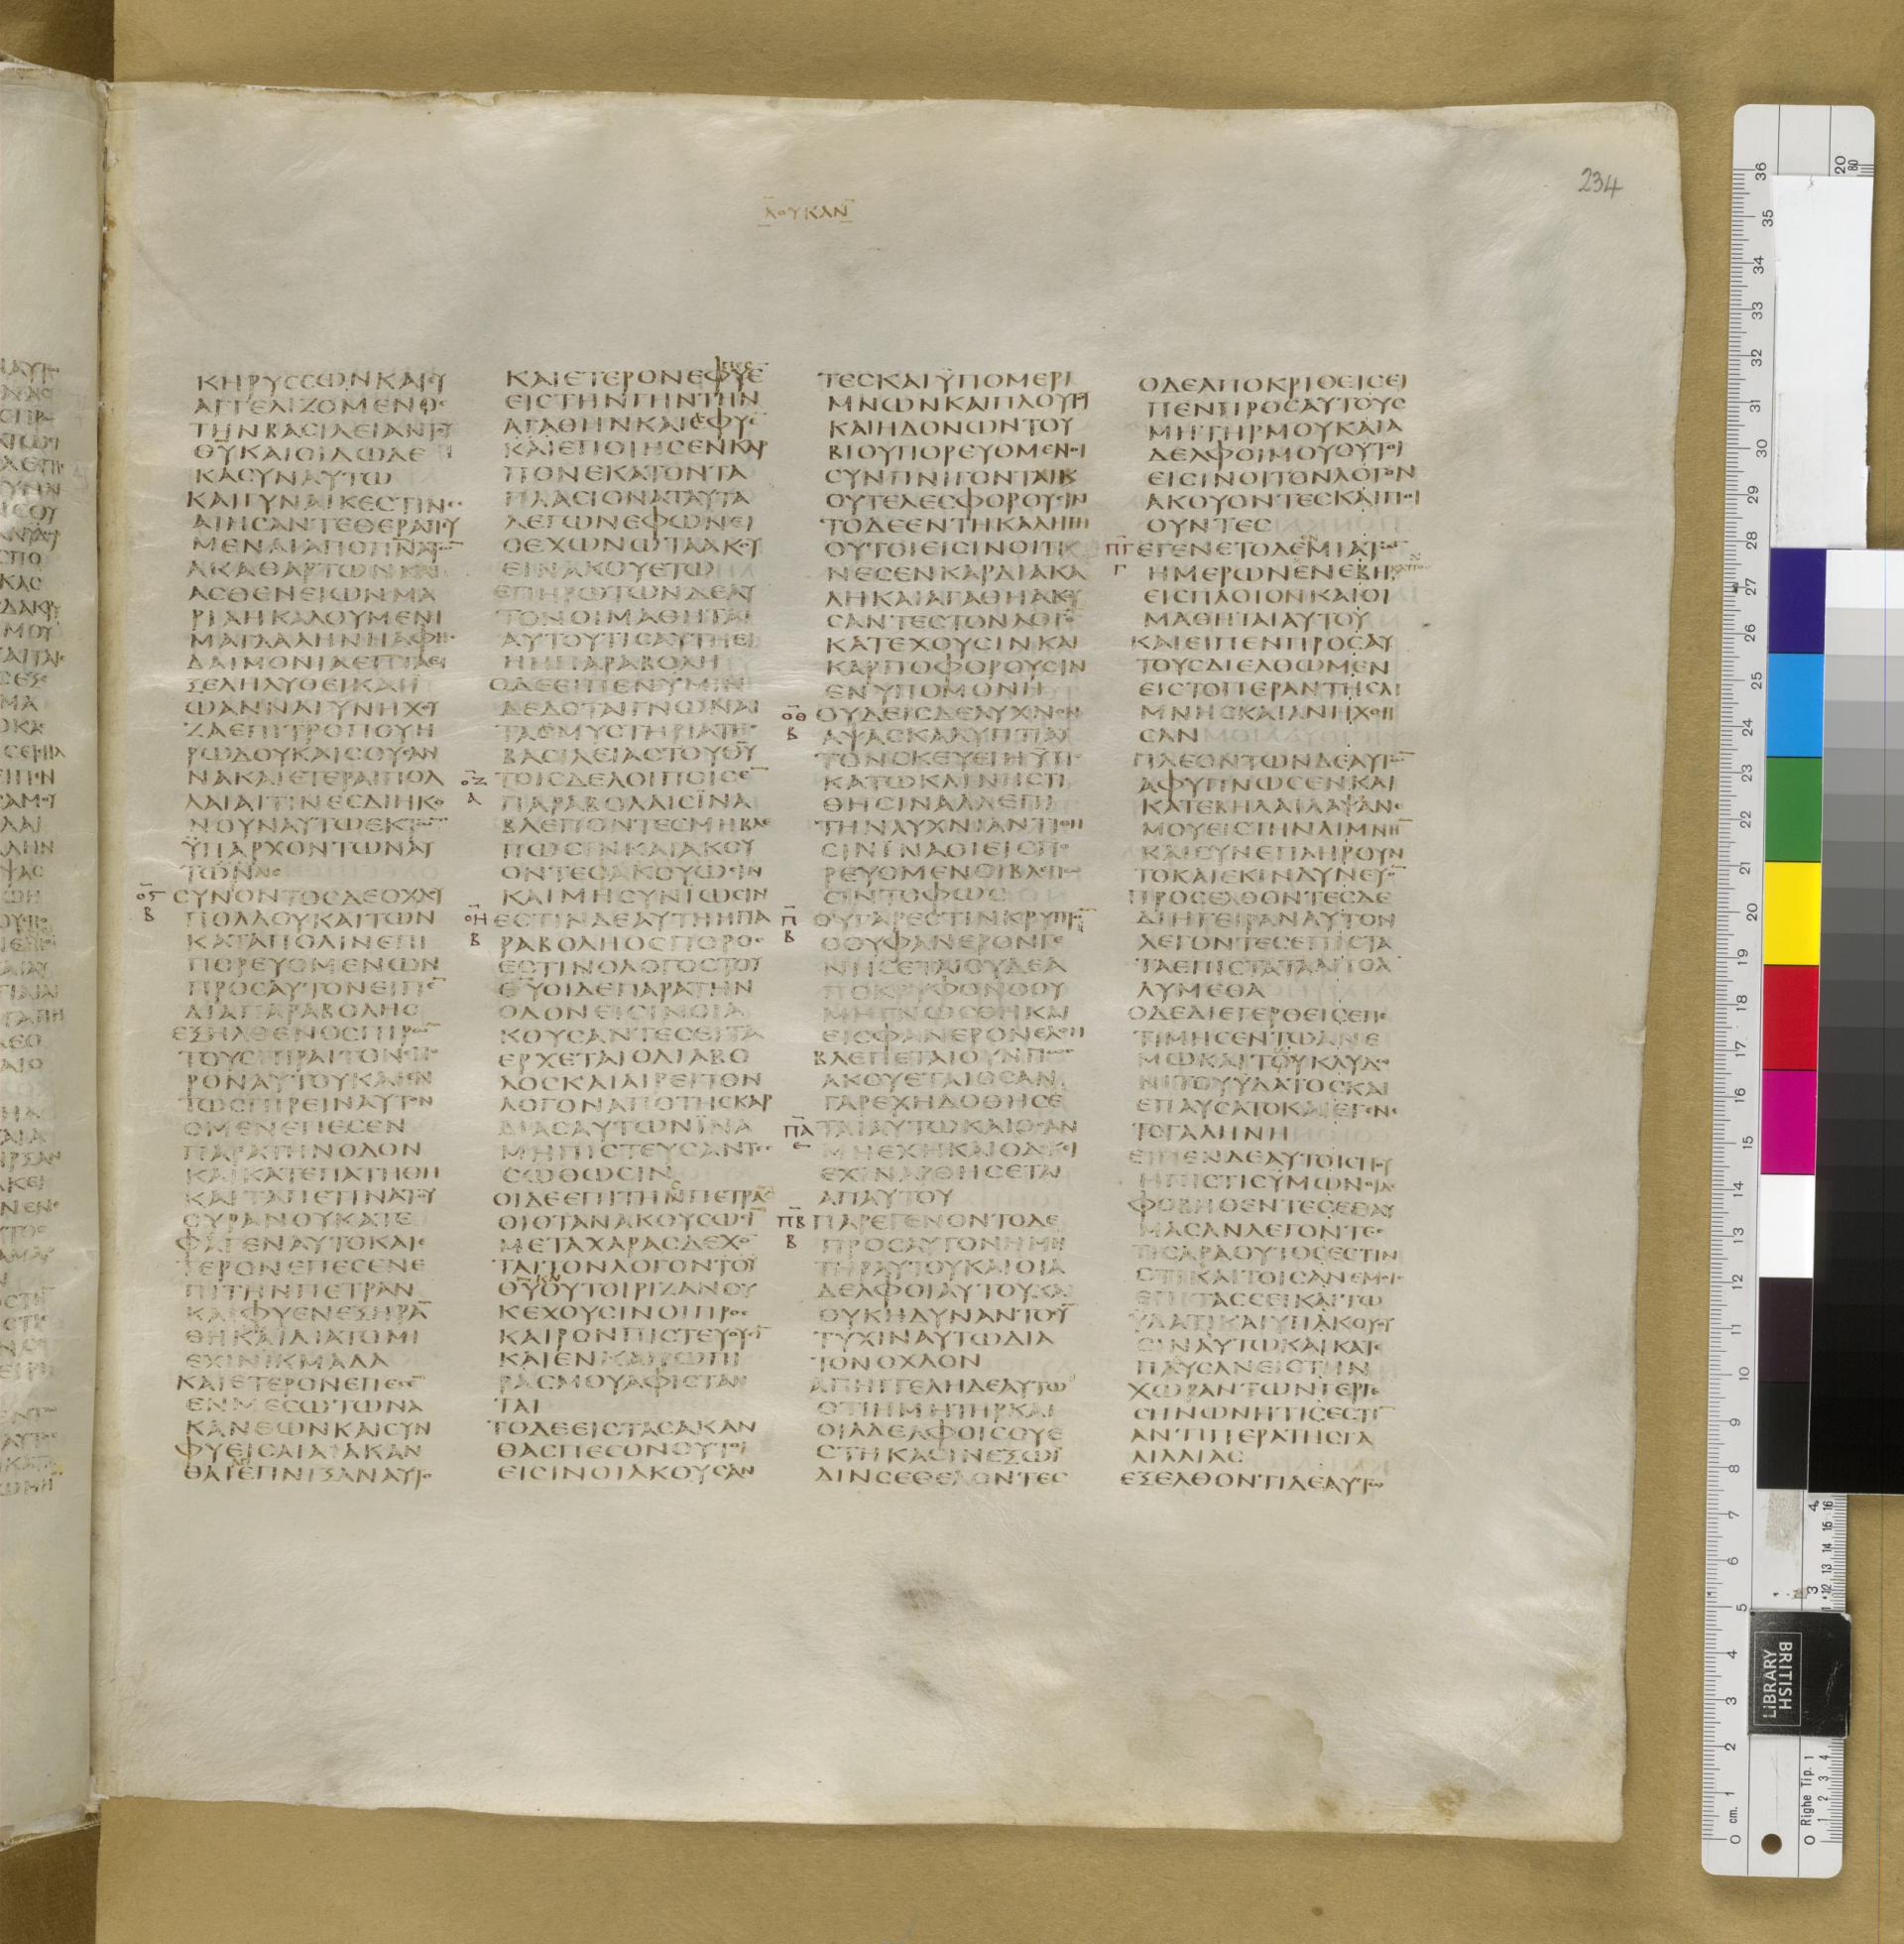 234
ΛΟΥΚΑΝ
ΚΗΡΥϹϹΩΝΚΑΙΕΥ
ΑΓΓΕΛΙΖΟΜΕΝΟϹ
ΤΗΝΒΑϹΙΛΕΙΑΝΤΟΥ
ΘΥΚΑΙΟΙΔΩΔΕ
ΚΑϹΥΝΑΥΤΩ
ΚΑΙΓΥΝΑΙΚΕϹΤΙΝΕϹ
ΑΙΗϹΑΝΤΕΘΕΡΑΠΕΥ
ΜΕΝΑΙΑΠΟΠΝΑΤΩΝ
ΑΚΑΘΑΡΤΩΝΚΑΙ
ΑϹΘΕΝΕΙΩΝΜΑ
ΡΙΑΗΚΑΛΟΥΜΕΝΗ
ΜΑΓΔΑΛΗΝΗΑΦΗϹ
ΔΑΙΜΟΝΙΑΕΠΤΑΕ
ΞΕΛΗΛΥΘΕΙΚΑΙ
ΩΑΝΝΑΓΥΝΗΧΟΥ
ΖΑΕΠΙΤΡΟΠΟΥΗ
ΡΩΔΟΥΚΑΙϹΟΥϹΑΝ
ΝΑΚΑΙΕΤΕΡΑΙΠΟΛ
ΛΑΙΑΙΤΙΝΕϹΔΙΗΚΟ
ΝΟΥΝΑΥΤΩΕΚΤΩΝ
ΫΠΑΡΧΟΝΤΩΝΑΥ
ΤΩΝ
ΟϚ ϹΥΝΟΝΤΟϹΔΕΟΧΛΟΥ
Β ΠΟΛΛΟΥΚΑΙΤΩΝ
ΚΑΤΑΠΟΛΙΝΕΠΙ
ΠΟΡΕΥΟΜΕΝΩΝ
ΠΡΟϹΑΥΤΟΝΕΙΠΕ
ΔΙΑΠΑΡΑΒΟΛΗϹ
ΕΞΗΛΘΕΝΟϹΠΙΡΩΝ
ΤΟΥϹΠΙΡΑΙΤΟΝϹΠΟ
ΡΟΝΑΥΤΟΥΚΑΙΕΝ
ΤΩϹΠΙΡΕΙΝΑΥΤΟΝ
ΟΜΕΝΕΠΕϹΕΝ
ΠΑΡΑΤΗΝΟΔΟΝ
ΚΑΙΚΑΤΕΠΑΤΗΘΗ
ΚΑΙΤΑΠΕΤΙΝΑΤΟΥ
ΟΥΡΑΝΟΥΚΑΤΕ
ΦΑΓΕΝΑΥΤΟΚΑΙΕ
ΤΕΡΟΝΕΠΕϹΕΝΕ
ΠΙΤΗΝΠΕΤΡΑΝ
ΚΑΙΦΥΕΝΕΞΗΡΑ
ΘΗΚΑΙΔΙΑΤΟΜΗ
ΕΧΙΝΙΚΜΑΔΑ
ΚΑΙΕΤΕΡΟΝΕΠΕϹΕ
ΕΝΜΕϹΩΤΩΝΑ
ΚΑΝΘΩΝΚΑΙϹΥΝ
ΦΥΕΙϹΑΙΑΙΑΚΑΝ
ΘΑΙΕΠΝΙΞΑΝΑΥΤΟ
ΚΑΙΕΤΕΡΟΝΕΦΥΕ
ΕΙϹΤΗΝΓΗΝΤΗΝ
ΑΓΑΘΗΝΚΑΙΕΦΥΕ
ΚΑΙΕΠΟΙΗϹΕΝΚΑΡ
ΠΟΝΕΚΑΤΟΝΤΑ
ΠΛΑϹΙΟΝΑΤΑΥΤΑ
ΛΕΓΩΝΕΦΩΝΕΙ
ΟΕΧΩΝΩΤΑΑΚΟΥ
ΕΙΝΑΚΟΥΕΤΩ
ΕΠΗΡΩΤΩΝΔΕΑΥ
ΤΟΝΟΙΜΑΘΗΤΑΙ
ΑΥΤΟΥΤΙϹΑΥΤΗΕΙ
ΗΗΠΑΡΑΒΟΛΗ
ΟΔΕΕΙΠΕΝΥΜΙΝ
ΔΕΔΟΤΑΙΓΝΩΝΑΙ
ΤΑΜΥϹΤΗΡΙΑΤΗϹ
ΒΑϹΙΛΕΙΑϹΤΟΥΘΥ
ΟΖ ΤΟΙϹΔΕΛΟΙΠΟΙϹΕ
Α ΠΑΡΑΒΟΛΑΙϹΪΝΑ
ΒΛΕΠΟΝΤΕϹΜΗΒΛΕ
ΠΩϹΙΝΚΑΙΑΚΟΥ
ΟΝΤΕϹΑΚΟΥϹΩϹΙΝ
ΚΑΙΜΗϹΥΝΙΩϹΙΝ
ΟΗ ΕϹΤΙΝΔΕΑΥΤΗΗΠΑ
Β ΡΑΒΟΛΗΟϹΠΟΡΟϹ
ΕϹΤΙΝΟΛΟΓΟϹΤΟΥ
ΘΥΟΙΔΕΠΑΡΑΤΗΝ
ΟΔΟΝΕΙϹΙΝΟΙΑ
ΚΟΥϹΑΝΤΕϹΕΙΤΑ
ΕΡΧΕΤΑΙΟΔΙΑΒΟ
ΛΟϹΚΑΙΑΙΡΕΙΤΟΝ
ΛΟΓΟΝΑΠΟΤΗϹΚΑΡ
ΔΙΑϹΑΥΤΩΝΪΝΑ
ΜΗΠΙϹΤΕΥϹΑΝΤΕϹ
ϹΩΘΩϹΙΝ
ΟΙΔΕΕΠΙΤΗΝΠΕΤΡΑ
ΟΙΟΤΑΝΑΚΟΥϹΩϹΙ
ΜΕΤΑΧΑΡΑϹΔΕΧΟ
ΤΑΙΤΟΝΛΟΓΟΝΤΟΥ
ΘΥΟΥΤΟΙΡΙΖΑΝΟΥ
ΚΕΧΟΥϹΙΝΟΙΠΡΟϹ
ΚΑΙΡΟΝΠΙϹΤΕΥΟΥϹΙ
ΚΑΙΕΝΚΑΙΡΩΠΙ
ΡΑϹΜΟΥΑΦΙϹΤΑΝ
ΤΑΙ
ΤΟΔΕΕΙϹΤΑϹΑΚΑΝ
ΘΑϹΠΕϹΟΝΟΥΤΟΙ
ΕΙϹΙΝΟΙΑΚΟΥϹΑΝ
ΤΕϹΚΑΙΫΠΟΜΕΡΙ
ΜΝΩΝΚΑΙΠΛΟΥΤΟΥ
ΚΑΙΗΔΟΝΩΝΤΟΥ
ΒΙΟΥΠΟΡΕΥΟΜΕΝΟΙ
ϹΥΝΠΝΙΓΟΝΤΑΙΚ
ΟΥΤΕΛΕϹΦΟΡΟΥϹΙΝ
ΤΟΔΕΕΝΤΗΚΑΛΗΓΗ
ΟΥΤΟΙΕΙϹΙΝΟΙΤΙ
ΝΕϹΕΝΚΑΡΔΙΑΚΑ
ΛΗΚΑΙΑΓΑΘΗΑΚΟΥ
ϹΑΝΤΕϹΤΟΝΛΟΓΟ
ΚΑΤΕΧΟΥϹΙΝΚΑΙ
ΚΑΡΠΟΦΟΡΟΥϹΙΝ
ΕΝΥΠΟΜΟΝΗ
ΟΘ ΟΥΔΕΙϹΔΕΛΥΧΝΟΝ
Β ΑΨΑϹΚΑΛΥΠΤΙΑΥ
ΤΟΝϹΚΕΥΕΙΗΫΠΟ
ΚΑΤΩΚΛΙΝΗϹΤΙ
ΘΗϹΙΝΑΛΛΕΠΙ
ΤΗΝΛΥΧΝΙΑΝΤΙΘΗ
ϹΙΝΪΝΑΟΙΕΙϹΠΟ
ΡΕΥΟΜΕΝΟΙΒΛΕΠΩ
ϹΙΝΤΟΦΩϹ
Π ΟΥΓΑΡΕϹΤΙΝΚΡΥΠΤΟ
Β ΟΟΥΦΑΝΕΡΟΝΓΕ
ΝΗϹΕΤΑΙΟΥΔΕΑ
ΠΟΚΡΥΦΟΝΟΟΥ
ΜΗΓΝΩϹΘΗΚΑΙ
ΕΙϹΦΑΝΕΡΟΝΕΛΘΗ
ΒΛΕΠΕΤΑΙΟΥΝΠΩϹ
ΑΚΟΥΕΤΑΙΟϹΑΝ
ΓΑΡΕΧΗΔΟΘΗϹΕ
ΠΑ ΤΑΙΑΥΤΩΚΑΙΟϹΑΝ
ΜΗΕΧΗΚΑΙΟΔΟΚΙ
ΕΧΙΝΑΡΘΗϹΕΤΑΙ
ΑΠΑΥΤΟΥ
ΠΒ ΠΑΡΕΓΕΝΟΝΤΟΔΕ
Β ΠΡΟϹΑΥΤΟΝΗΜΗ
ΤΗΡΑΥΤΟΥΚΑΙΟΙΑ
ΔΕΛΦΟΙΑΥΤΟΥΚΑΙ
ΟΥΚΗΔΥΝΑΝΤΟϹΥ
ΤΥΧΙΝΑΥΤΩΔΙΑ
ΤΟΝΟΧΛΟΝ
ΑΠΗΓΓΕΛΗΔΕΑΥΤΩ
ΟΤΙΗΜΗΤΗΡΚΑΙ
ΟΙΑΔΕΛΦΟΙϹΟΥΕ
ϹΤΗΚΑϹΙΝΕΞΩΪ
ΔΙΝϹΕΘΕΛΟΝΤΕϹ
ΟΔΕΑΠΟΚΡΙΘΕΙϹΕΙ
ΠΕΝΠΡΟϹΑΥΤΟΥϹ
ΜΗΤΗΡΜΟΥΚΑΙΑ
ΔΕΛΦΟΙΜΟΥΟΥΤΟΙ
ΕΙϹΙΝΟΙΤΟΝΛΟΓΟΝ
ΑΚΟΥΟΝΤΕϹΚΑΙΠΟΙ
ΟΥΝΤΕϹ
ΠΓ ΕΓΕΝΕΤΟΔΕΜΙΑΤΩ
Γ ΗΜΕΡΩΝΕΝΕΒΗ
ΕΙϹΠΛΟΙΟΝΚΑΙΟΙ
ΜΑΘΗΤΑΙΑΥΤΟΥ
ΚΑΙΕΙΠΕΝΠΡΟϹΑΥ
ΤΟΥϹΔΙΕΛΘΩΜΕΝ
ΕΙϹΤΟΠΕΡΑΝΤΗϹΛΙ
ΜΝΗϹΚΑΙΑΝΗΧΘΗ
ϹΑΝ
ΠΛΕΟΝΤΩΝΔΕΑΥΤΩ
ΑΦΥΠΝΩϹΕΝΚΑΙ
ΚΑΤΕΒΗΛΑΙΛΑΨΑΝΕ
ΜΟΥΕΙϹΤΗΝΛΙΜΝΗ
ΚΑΙϹΥΝΕΠΛΗΡΟΥΝ
ΤΟΚΑΙΕΚΙΝΔΥΝΕΥΟ
ΠΡΟϹΕΛΘΟΝΤΕϹΔΕ
ΔΙΗΓΕΙΡΑΝΑΥΤΟΝ
ΛΕΓΟΝΤΕϹΕΠΙϹΤΑ
ΤΑΕΠΙϹΤΑΤΑΑΠΟΛ
ΛΥΜΕΘΑ
ΟΔΕΔΙΕΓΕΡΘΕΙϹΕΠΕ
ΤΙΜΗϹΕΝΤΩΑΝΕ
ΜΩΚΑΙΤΩΚΛΥΔΩ
ΝΙΤΟΥΥΔΑΤΟϹΚΑΙ
ΕΠΑΥϹΑΤΟΚΑΙΕΓΕΝΕ
ΤΟΓΑΛΗΝΗ
ΕΙΠΕΝΔΕΑΥΤΟΙϹΠΟΥ
ΗΠΙϹΤΙϹΥΜΩΝΟΙΔΕ
ΦΟΒΗΘΕΝΤΕϹΕΘΑΥ
ΜΑϹΑΝΛΕΓΟΝΤΕϹ
ΤΙϹΑΡΑΟΥΤΟϹΕϹΤΙΝ
ΟΤΙΚΑΙΤΟΙϹΑΝΕΜΟΙϹ
ΕΠΙΤΑϹϹΕΙΚΑΙΤΩ
ΫΔΑΤΙΚΑΙΥΠΑΚΟΥΟΥ
ϹΙΝΑΥΤΩΚΑΙΚΑΤΕ
ΠΛΕΥϹΑΝΕΙϹΤΗΝ
ΧΩΡΑΝΤΩΝΓΕΡΓΕ
ϹΗΝΩΝΗΤΙϹΕϹΤΙ
ΑΝΤΙΠΕΡΑΤΗϹΓΑ
ΛΙΛΑΙΑϹ
ΕΞΕΛΘΟΝΤΙΔΕΑΥΤΩ